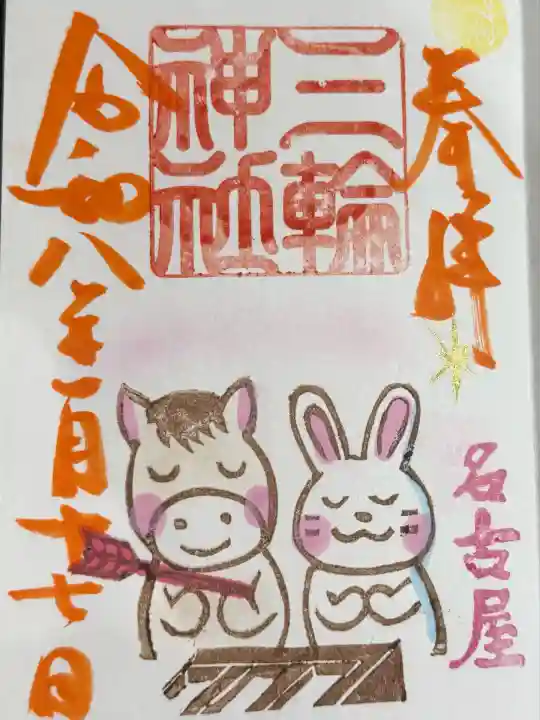 奉拝
三輪
神社
名古屋
令和八年一月十七日